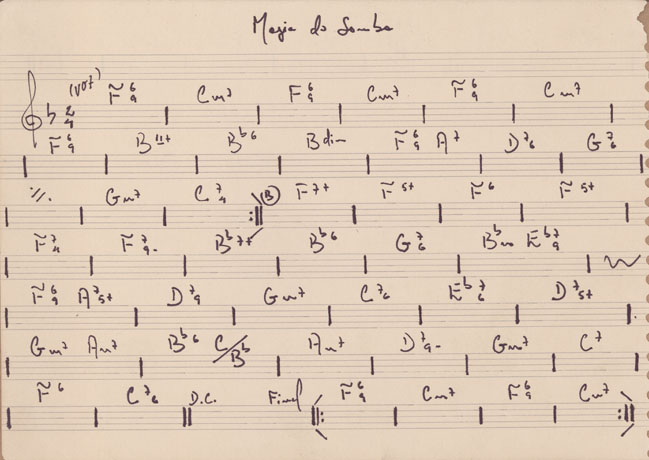 Magia do Samba
(Vot) F 6/9 Cm7 F 6/9 Cm7 F 6/9 Cm7
2/4
F 6/9 B 11+ Bb6 Bdim F 6/9 A7 D 7/6 G 7/6
٪ Gm7 C 7/4 (B) F 7+ F 5+ F 6 F 5+
F 7/4 F 7/9- Bb 7+ Bb6 G 7/6 Bbm Eb 7/9
F 6/9 A 7/5+ D 7/9 Gm7 C 7/6 Eb 7/6 D 7/5+
Gm7 Am7 Bb6 C/Bb Am7 D 7/9- Gm7 C7
F 6 C 7/6 D.C. Final F 6/9 Cm7 F 6/9 Cm7